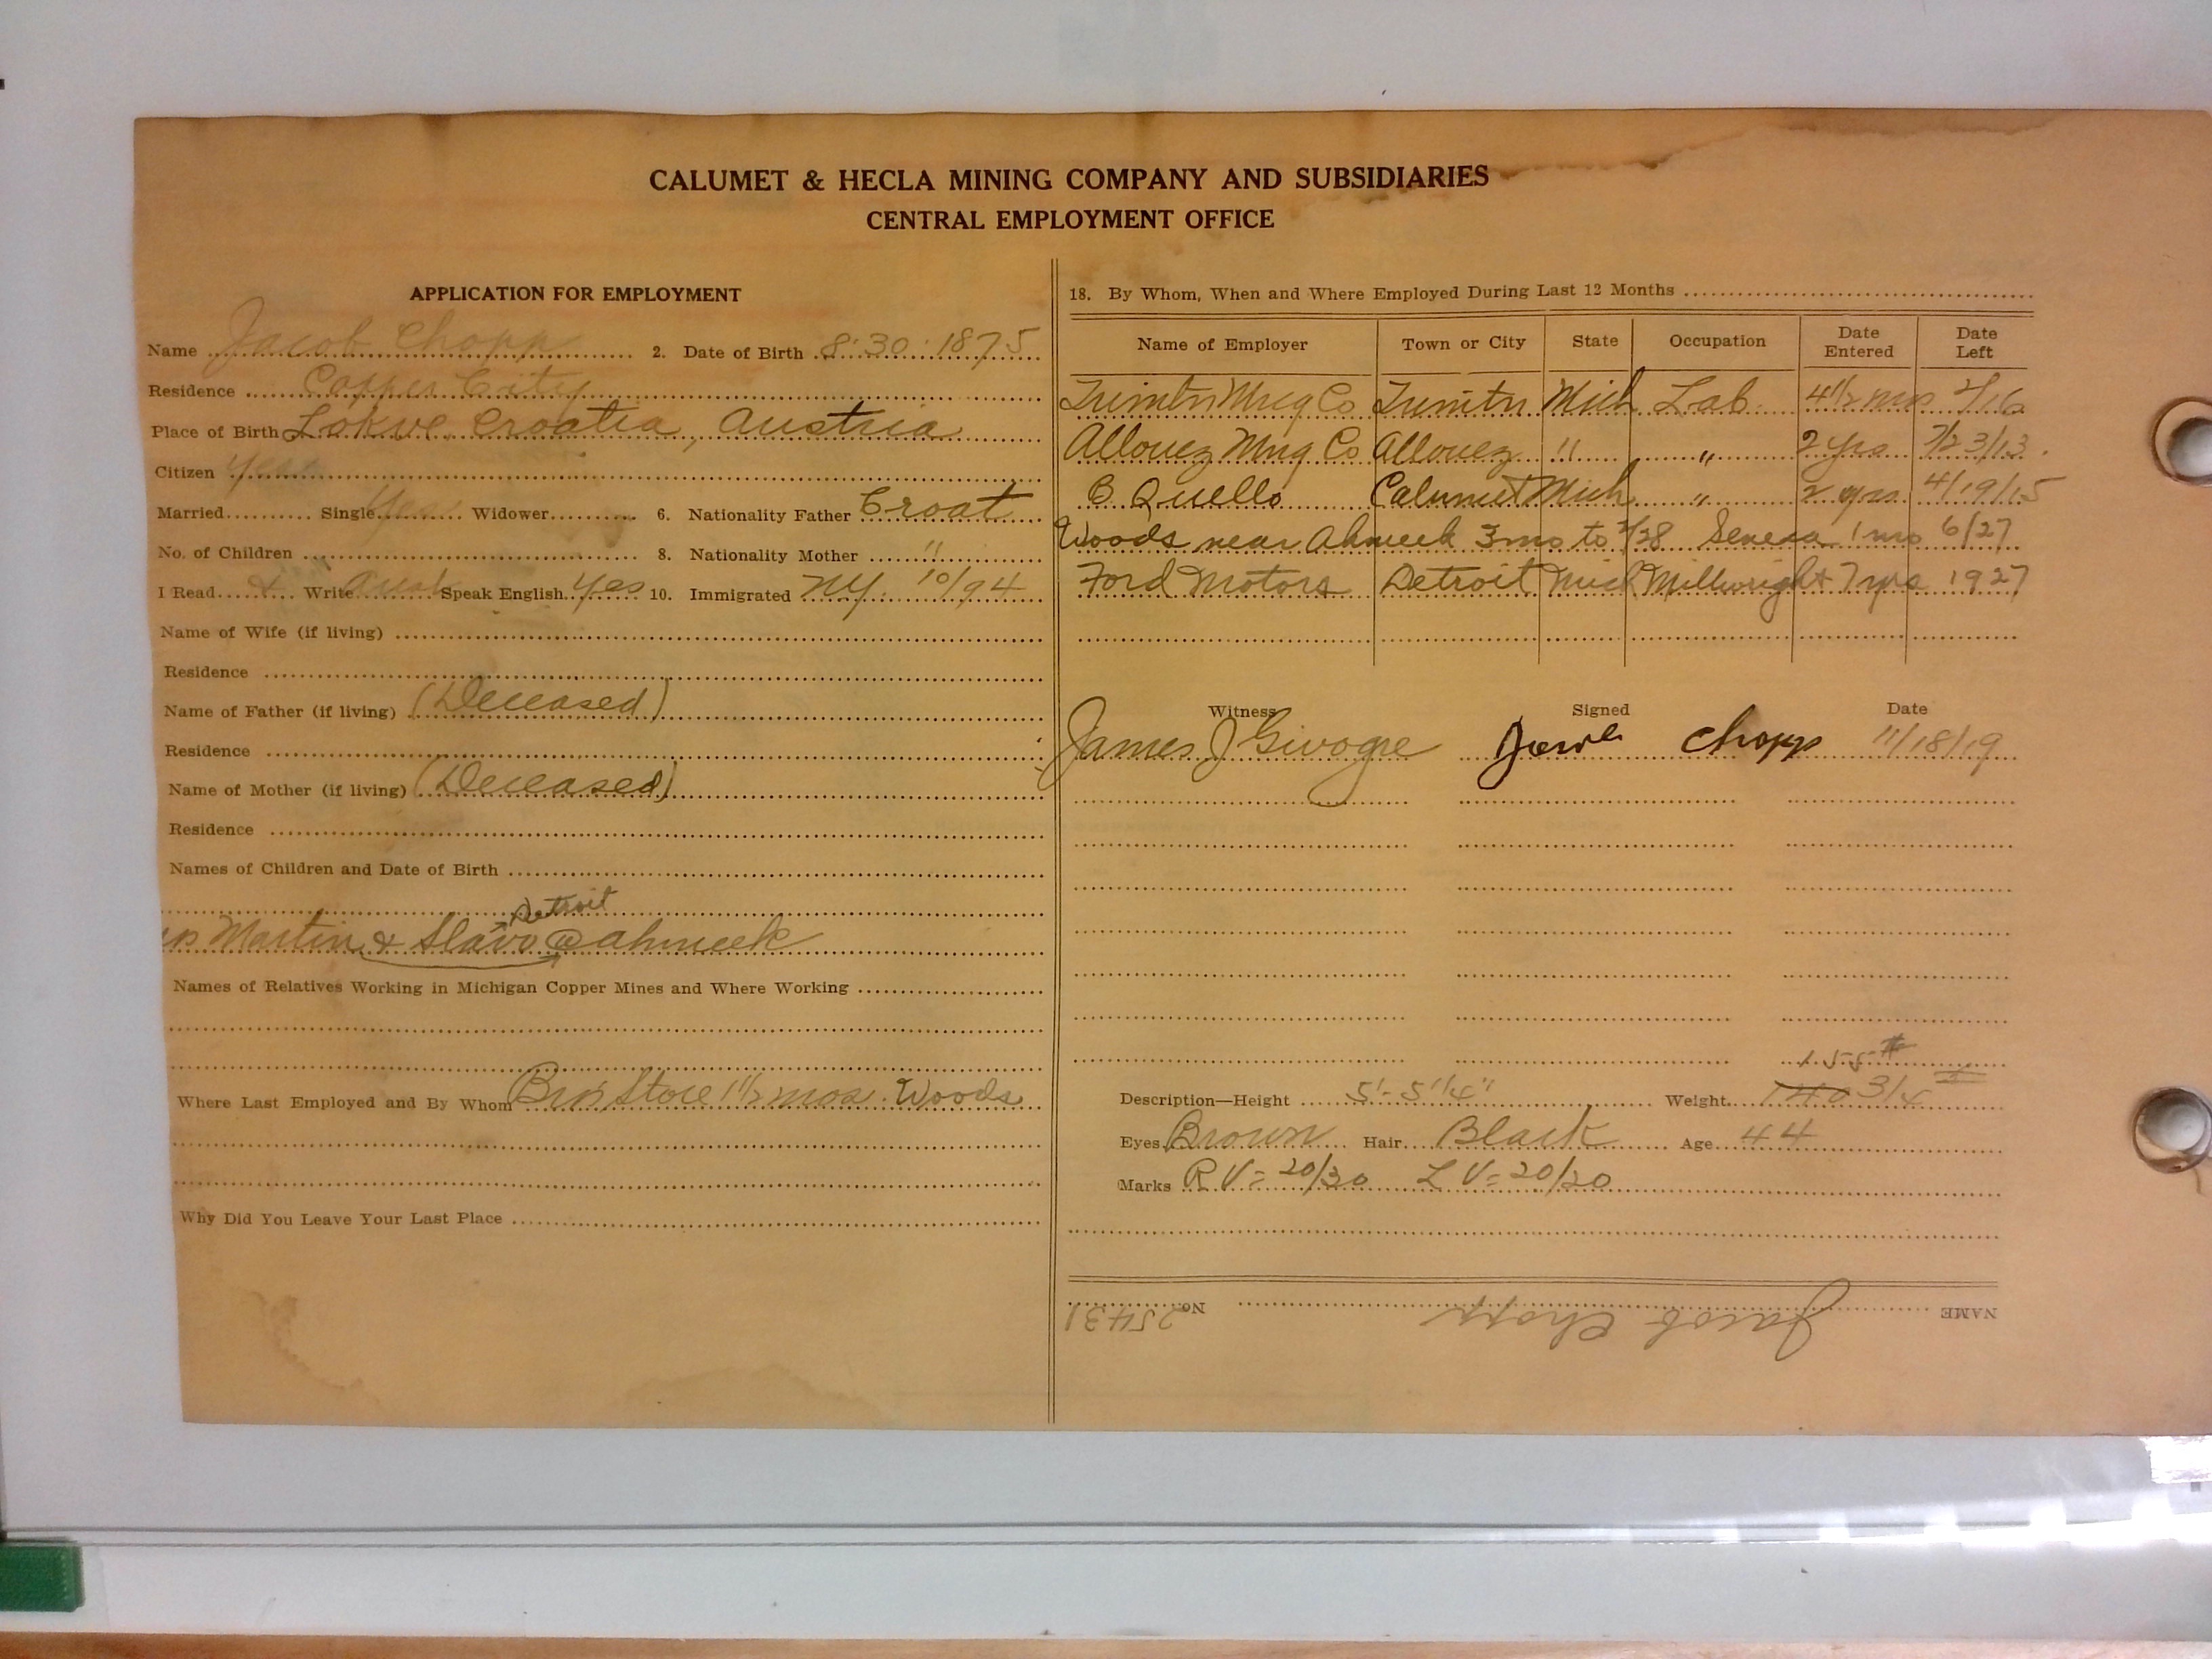 CALUMET & HECLA MINING COMPANY AND SUBSIDIARIES
CENTRAL EMPLOYMENT OFFICE
APPLICATION FOR EMPLOYMENT
Name Jacob Chopp 2. Date of Birth 8-30-1875
Residence Copper City
Place of Birth Lokve, Croatia, Austria
Citizen Yes
Married Single Yes Widower 6. Nationality Father Croat
No. of Children 8. Nationality Mother "
I Read & Write Aust Speak English Yes 10. Immigrated NY. 10/94
Name of Wife (if living)
Residence
Name of Father (if living) (Deceased)
Residence
Name of Mother (if living) (Deceased)
Residence
Names of Children and Date of Birth
Detroit
Martin & Slavo @ Ahmeek
Names of Relatives Working in Michigan Copper Mines and Where Working
Where Last Employed and By Whom Bro's Store 1 1/2 mos. Woods
Why Did You Leave Your Last Place
18. By Whom, When and Where Employed During Last 12 Months
Name of Employer Town or City State Occupation Date Entered Date Left
Mng Co Mich Lab 4 1/2 mos 2/16
Allouez Mng Co Allouez " " 2 yrs 7/23/13
B. Quello Calumet Mich " 2 yrs 4/19/15
Woods near Ahmeek 3 mo to 2/28 Seneca 1 mo 6/27
Ford Motors Detroit Mich Millwright 7 yrs 1927
Witness Signed Date
James J Chopp 11/18/19
155#
Description—Height 5'-5 1/4" Weight 140 3/4
Eyes Brown Hair Black Age 44
Marks R V= 20/30 L V= 20/20
NAME Jacob Chopp No. 25431